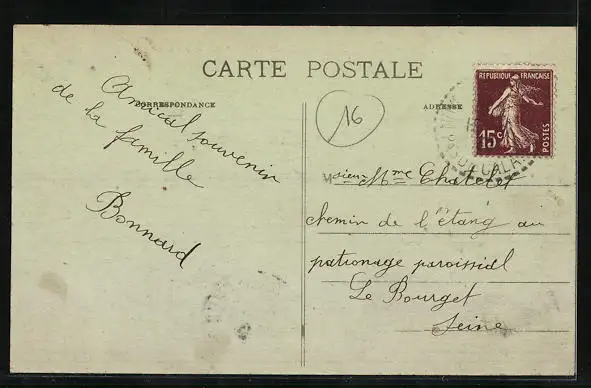 CARTE POSTALE
CORRESPONDANCE
ADRESSE
16
RÉPUBLIQUE FRANÇAISE
15c
POSTES
Amical souvenir
de la famille
Bonnard
Mme Chatelet
chemin de l'étang au
patronage paroissial
Le Bourget
Seine